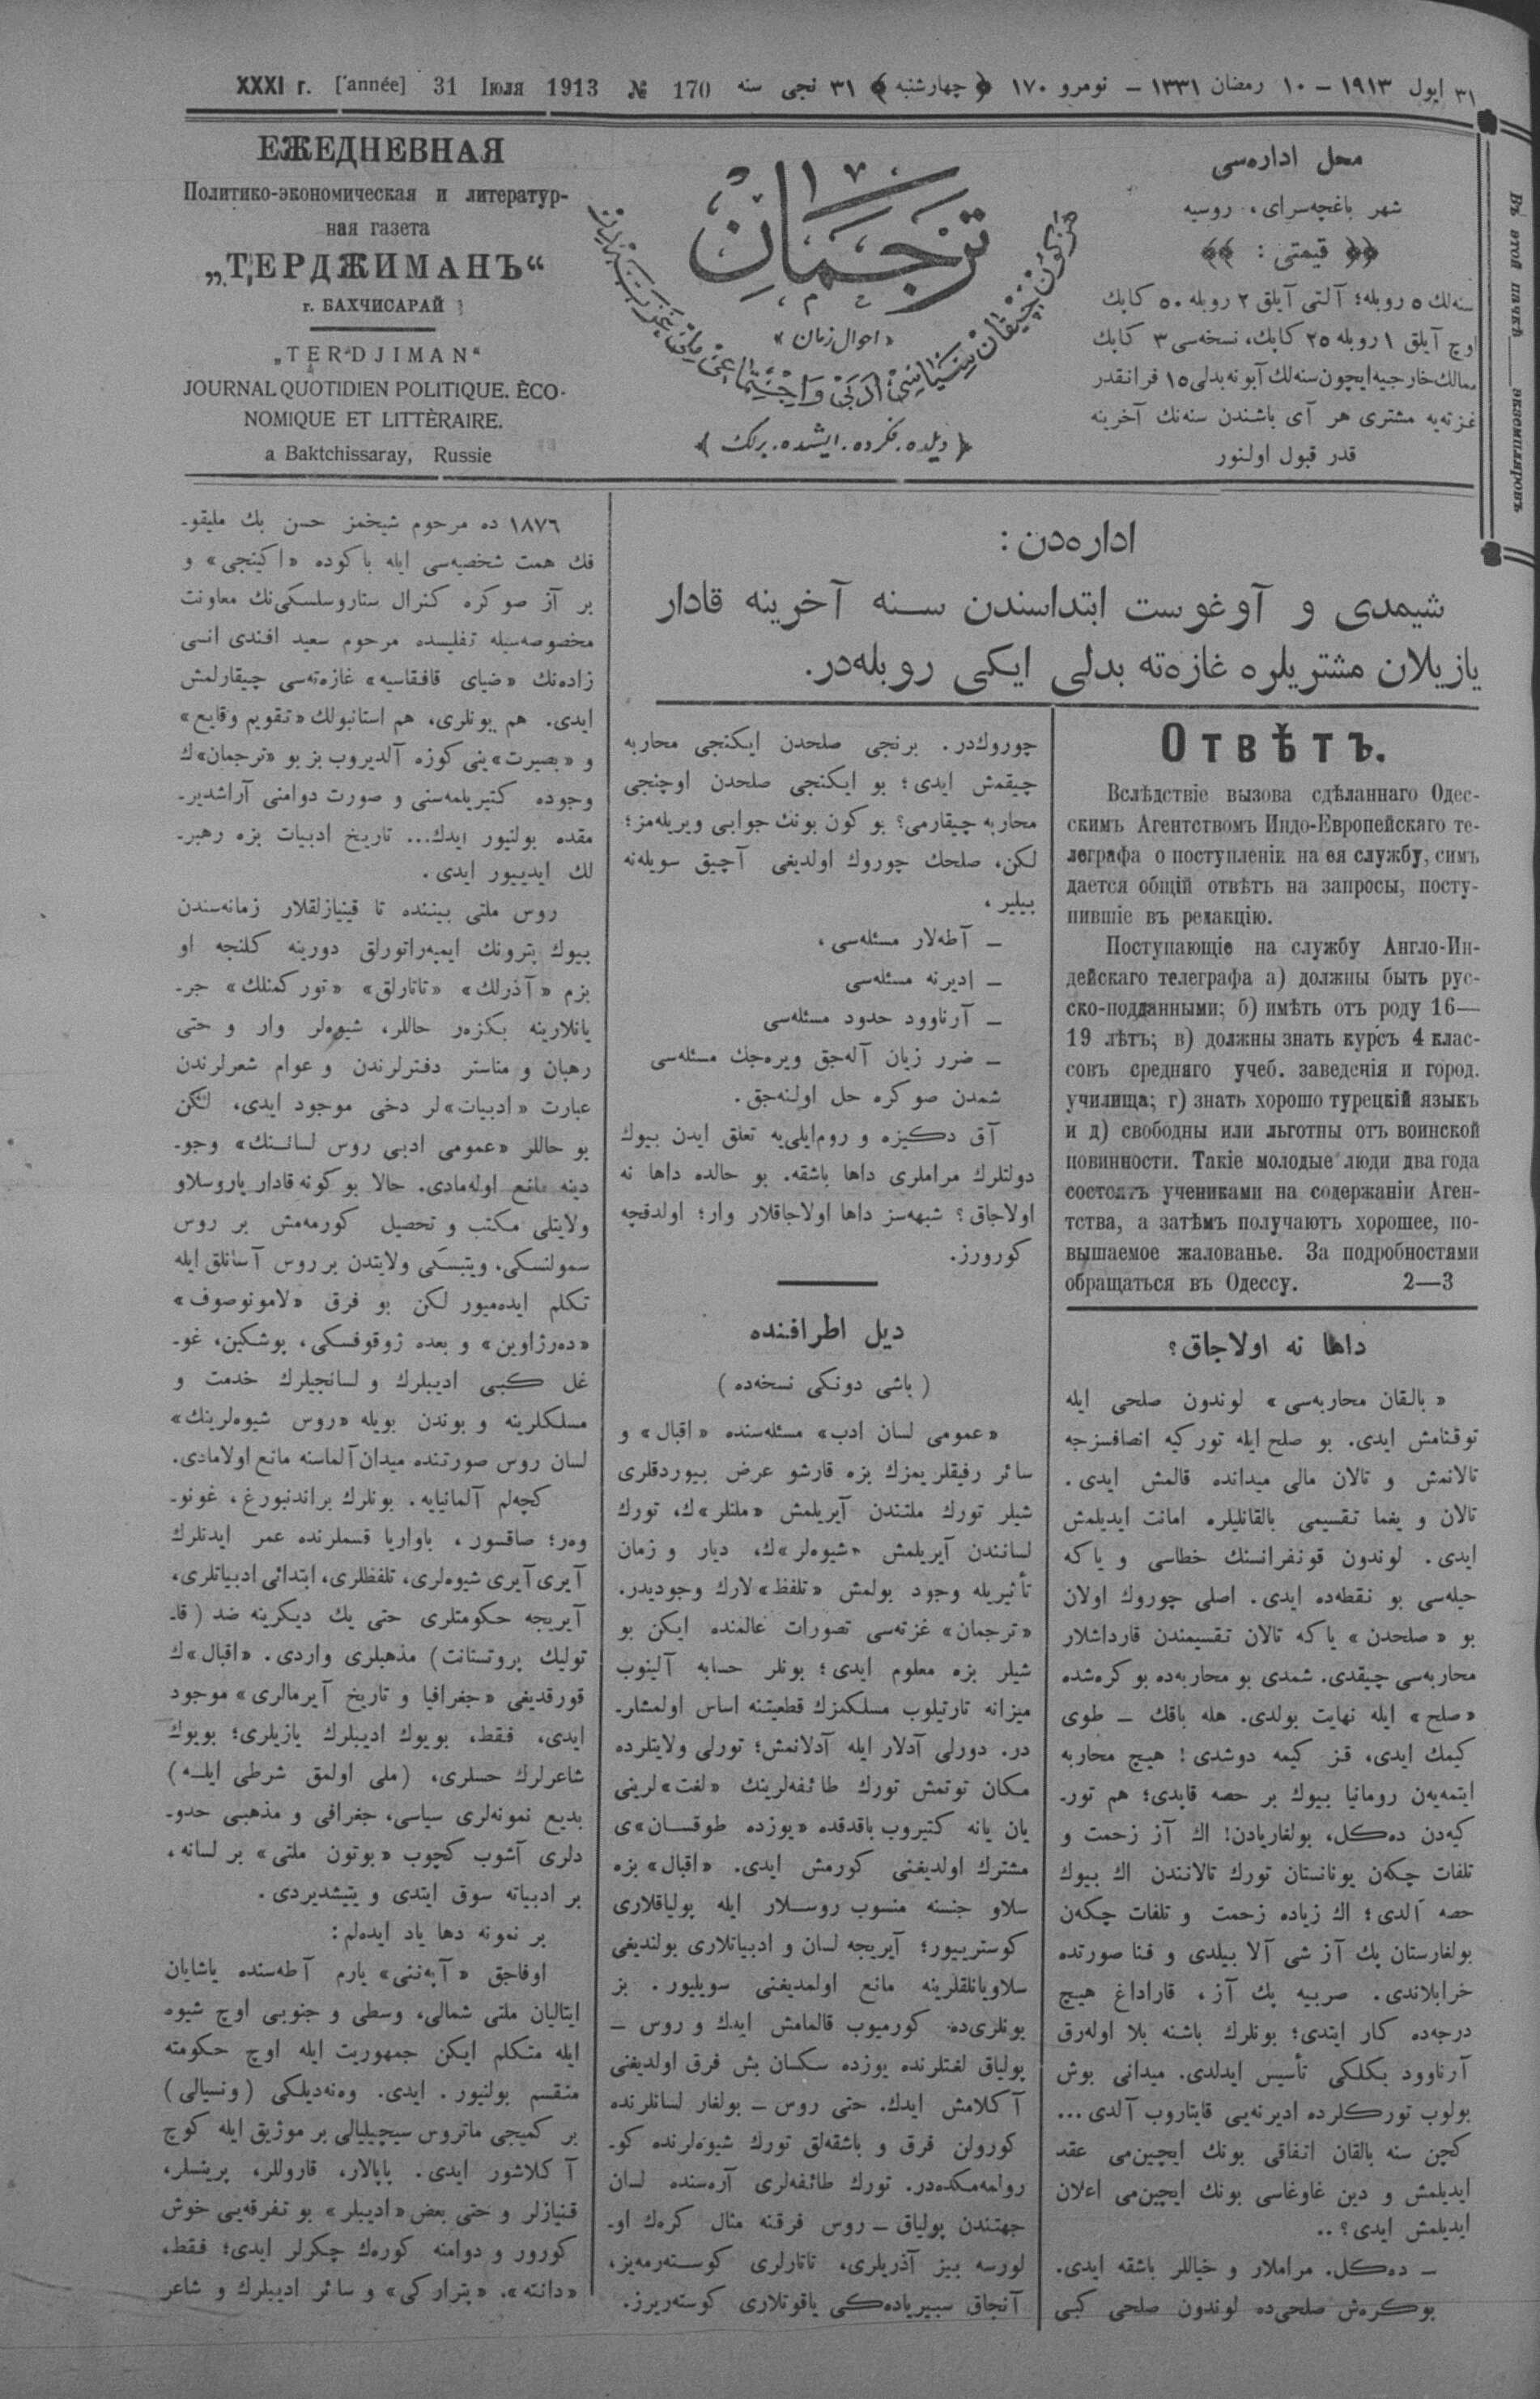 ٣١ ایول ١٩١٣ – ١٠ رمضان ١٣٣١ – نومرو ١٧٠ ﴿ چهارشنبه ﴾ ٣١ نجی سنه № 170 31 Іюля 1913 [année] XXXI г.
محل اداره‌سی
شهر باغچه‌سرای، روسیه
﴿﴿ قیمتی : ﴾﴾
سنه‌لك ٥ روبله؛ آلتی آیلق ٢ روبله ٥٠ كاپك
اوچ آیلق ١ روبله ٢٥ كاپك، نسخه‌سی ٣ كاپك
ممالك خارجیه‌ایچون سنه‌لك آبونه‌بدلی ١٥ فرانقدر
غزته‌یه مشتری هر آی باشندن سنه‌نك آخرینه
قدر قبول اولنور
ترجمان
« احوال زمان »
هركون چیقان سیاسی، ادبی و اجتماعی ملی غزته‌در
﴿ دیلده. فكرده. ایشده. برلك ﴾
ЕЖЕДНЕВНАЯ
Политико-экономическая и литератур-
ная газета
„ТЕРДЖИМАНЪ“
г. БАХЧИСАРАЙ
„TERDJIMAN“
JOURNAL QUOTIDIEN POLITIQUE. ÈCO-
NOMIQUE ET LITTÈRAIRE.
a Baktchissaray, Russie
Въ этой пачкѣ ____ экземпляровъ
اداره‌دن :
شیمدی و آوغوست ابتداسندن سنه آخرینه قادار
یازیلان مشتریلره غازه‌ته بدلی ایكی روبله‌در.
Отвѣтъ.
Вслѣдствіе вызова сдѣланнаго Одес-
скимъ Агентствомъ Индо-Европейскаго те-
леграфа о поступленіи на ея службу, симъ
дается общій отвѣтъ на запросы, посту-
пившіе въ редакцію.
Поступающіе на службу Англо-Ин-
дейскаго телеграфа а) должны быть рус-
ско-подданными; б) имѣть отъ роду 16—
19 лѣтъ; в) должны знать курсъ 4 клас-
совъ средняго учеб. заведенія и город.
училища; г) знать хорошо турецкій языкъ
и д) свободны или льготны отъ воинской
повинности. Такіе молодые люди два года
состоятъ учениками на содержаніи Аген-
тства, а затѣмъ получаютъ хорошее, по-
вышаемое жалованье. За подробностями
обращаться въ Одессу. 2—3
داها نه اولاجاق؟
« بالقان محاربه‌سی » لوندون صلحی ایله
توقتامش ایدی. بو صلح ایله توركیه انصافسزجه
تالانمش و تالان مالی میدانده قالمش ایدی.
تالان و یغما تقسیمی بالقانلیلره امانت ایدیلمش
ایدی. لوندون قونفرانسنك خطاسی و یاكه
حیله‌سی بو نقطه‌ده ایدی. اصلی چوروك اولان
بو « صلحدن » یاكه تالان تقسیمندن قارداشلار
محاربه‌سی چیقدی. شمدی بو محاربه‌ده بو كره‌شده
« صلح » ایله نهایت بولدی. هله باقك – طوی
كیمك ایدی، قز كیمه دوشدی! هیچ محاربه
ایتمه‌یه‌ن رومانیا بیوك بر حصه قاپدی؛ هم تور-
كیه‌دن ده‌كل، بولغاریادن! اك آز زحمت و
تلفات چكه‌ن یونانستان تورك تالانندن اك بیوك
حصه آلدی؛ اك زیاده زحمت و تلفات چكه‌ن
بولغارستان پك آز شی آلا بیلدی و فنا صورتده
خرابلاندی. صربیه پك آز، قاراداغ هیچ
درجه‌ده كار ایتدی؛ بونلرك باشنه بلا اوله‌رق
آرناوود بكلكی تأسیس ایدلدی. میدانی بوش
بولوب توركلرده ادیرنه‌یی قایتاروب آلدی...
كچن سنه بالقان اتفاقی بونك ایچین‌می عقد
ایدیلمش و دین غاوغاسی بونك ایچین‌می اعلان
ایدیلمش ایدی؟ ..
– ده‌كل. مراملار و خیاللر باشقه ایدی.
بوكره‌ش صلحی‌ده لوندون صلحی كبی
چوروك‌در. برنجی صلحدن ایكنجی محاربه
چیقمش ایدی؛ بو ایكنجی صلحدن اوچنجی
محاربه چیقارمی؟ بو كون بونك جوابی ویریله‌مز؛
لكن، صلحك چوروك اولدیغی آچیق سویله‌نه
بیلیر،
– آطه‌لار مسئله‌سی،
– ادیرنه مسئله‌سی
– آرناوود حدود مسئله‌سی
– ضرر زیان آله‌جق ویره‌جك مسئله‌سی
شمدن صوكره حل اولنه‌جق.
آق دكیزه و روم‌ایلی‌یه تعلق ایدن بیوك
دولتلرك مراملری داها باشقه. بو حالده داها نه
اولاجاق؟ شبهه‌سز داها اولاجاقلار وار؛ اولدقچه
كورورز.
دیل اطرافنده
( باشی دونكی نسخه‌ده )
« عمومی لسان ادب » مسئله‌سنده « اقبال » و
سائر رفیقلریمزك بزه قارشو عرض بیوردقلری
شیلر تورك ملتندن آیریلمش « ملتلر »ك، تورك
لسانندن آیریلمش « شیوه‌لر »ك، دیار و زمان
تأثیریله وجود بولمش « تلفظ » لارك وجودیدر.
« ترجمان » غزته‌سی تصورات عالمنده ایكن بو
شیلر بزه معلوم ایدی؛ بونلر حسابه آلینوب
میزانه تارتیلوب مسلكمزك قطعیتنه اساس اولمشار-
در. دورلی آدلار ایله آدلانمش؛ تورلی ولایتلرده
مكان توتمش تورك طائفه‌لرینك « لغت » لرینی
یان یانه كتیروب باقدقده « یوزده طوقسان »ی
مشترك اولدیغنی كورمش ایدی. « اقبال » بزه
سلاو جنسنه منسوب روسلار ایله پولیاقلاری
كوسترییور؛ آیریجه لسان و ادبیاتلاری بولندیغی
سلاویانلقلرینه مانع اولمدیغنی سویلیور. بز
بونلری‌ده كورمیوب قالمامش ایدك و روس –
پولیاق لغتلرنده یوزده سكسان بش فرق اولدیغنی
آكلامش ایدك. حتی روس – بولغار لسانلرنده
كورولن فرق و باشقه‌لق تورك شیوه‌لرنده كو-
رولمه‌مكده‌در. تورك طائفه‌لری آره‌سنده لسان
جهتندن پولیاق – روس فرقنه مثال كره‌ك او-
لورسه بیز آذریلری، تاتارلری كوسته‌رمه‌یز،
آنجاق سیبریاده‌كی یاقوتلاری كوسته‌ریرز.
١٨٧٦ ده مرحوم شیخمز حسن بك ملیقو-
فك همت شخصیه‌سی ایله باكوده « اكینجی » و
بر آز صوكره كنرال ستاروسلسكی‌نك معاونت
مخصوصه‌سیله تفلیسده مرحوم سعید افندی انسی
زاده‌نك « ضیای قافقاسیه » غازه‌ته‌سی چیقارلمش
ایدی. هم بونلری، هم استانبولك « تقویم وقایع »
و « بصیرت » ینی كوزه آلدیروب بز بو « ترجمان »ك
وجوده كتیریلمه‌سنی و صورت دوامنی آراشدیر-
مقده بولنیور ایدك... تاریخ ادبیات بزه رهبر-
لك ایدییور ایدی.
روس ملتی بیننده تا قینیازلقلار زمانه‌سندن
بیوك پترونك ایمپه‌راتورلق دورینه كلنجه او
بزم « آذرلك » « تاتارلق » « توركمنلك » جر-
یانلارینه بكزه‌ر حاللر، شیوه‌لر وار و حتی
رهبان و مناستر دفترلرندن و عوام شعرلرندن
عبارت « ادبیات » لر دخی موجود ایدی، لكن
بو حاللر « عمومی ادبی روس لسانـنك » وجو-
دینه مانع اوله‌مادی. حالا بو كونه قادار یاروسلاو
ولایتلی مكتب و تحصیل كورمه‌مش بر روس
سمولنسكی، ویتبسكی ولایتدن بر روس آسانلق ایله
تكلم ایده‌میور لكن بو فرق « لامونوصوف »
« ده‌رژاوین » و بعده ژوقوفسكی، پوشكین، غو-
غل كبی ادیبلرك و لسانجیلرك خدمت و
مسلكلرینه و بوندن بویله « روس شیوه‌لرینك »
لسان روس صورتنده میدان آلماسنه مانع اولامادی.
كچه‌لم آلمانیایه. بونلرك براندنبورغ، غونو-
وه‌ر؛ صاقسور، باواریا قسملرنده عمر ایدنلرك
آیری آیری شیوه‌لری، تلفظلری، ابتدائی ادبیاتلری،
آیریجه حكومتلری حتی یك دیكرینه ضد ( قا-
تولیك پروتستانت ) مذهبلری واردی. « اقبال »ك
قورقدیغی « جغرافیا و تاریخ آیرمالری » موجود
ایدی، فقط، بویوك ادیبلرك یازیلری؛ بویوك
شاعرلرك حسلری، ( ملی اولمق شرطی ایله )
بدیع نمونه‌لری سیاسی، جغرافی و مذهبی حدو-
دلری آشوب كچوب « بوتون ملتی » بر لسانه،
بر ادبیاته سوق ایتدی و یتیشدیردی.
بر نمونه دها یاد ایده‌لم :
اوفاجق « آپه‌ننی » یارم آطه‌سنده یاشایان
ایتالیان ملتی شمالی، وسطی و جنوبی اوچ شیوه
ایله متكلم ایكن جمهوریت ایله اوچ حكومته
منقسم بولنیور. ایدی. وه‌نه‌دیكلی ( ونسیالی )
بر كمیجی ماتروس سیچیلیالی بر موژیق ایله كوچ
آكلاشور ایدی. پاپالار، قاروللر، پرینسلر،
قنیازلر و حتی بعض « ادیبلر » بو تفرقه‌یی خوش
كورور و دوامنه كوره‌ك چكرلر ایدی؛ فقط،
« دانته »، « پتراركی » و سائر ادیبلرك و شاعر